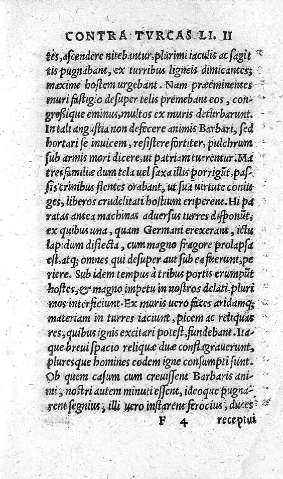 CONTRA TVRCAS LI. II
tes, ascendere nitebantur. plurimi iaculis ac sagit
tis pugnabant, ex turribus ligneis dimicantes,
maxime hostem urgebant. Nam præeminentes
muri fastigio desuper telis premebant eos, con-
gressique eminus, multos ex muris deturbarunt.
In tali angustia non defecere animis Barbari, sed
hortari se inuicem, resistere fortiter, pulchrum
sub armis mori dicere, ut patriam tuerentur. Ma
tresfamiliæ dum tela uel saxa illis porrigūt. pas-
sis crinibus flentes orabant, ut sua uirtute coniu
ges, liberos crudelitati hostium eriperent. Hi pa
ratas antea machinas aduersus turres disponūt,
ex quibus una, quam Germani erexerant, ictu
lapidum disiecta, cum magno fragore prolapsa
est. atq; omnes qui desuper aut sub ea fuerunt, pe
riere. Sub idem tempus à tribus portis erumpūt
hostes, & magno impetu in nostros delati. pluri
mos interficiunt. Ex muris uero faces ardamq;
materiam in turres iaciunt, picem ac reliquas
res, quibus ignis excitari potest, fundebant. Ita-
que breui spacio reliquæ duæ conflagrauerunt,
pluresque homines eodem igne consumpti sunt.
Ob quem casum cum creuissent Barbaris ani
mi, nostri autem minuti essent, ideoque pugna-
rent segnius, illi uero instarent ferocius, duces
F 4 receptui